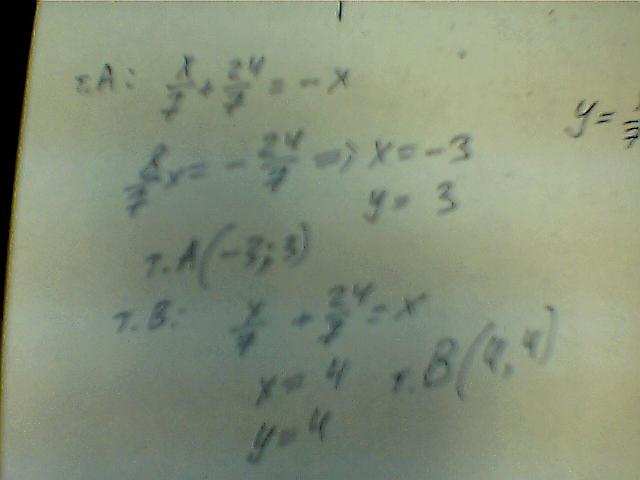 т.А: x/7 + 24/7 = -x
y = 
8/7 x = - 24/7 => x = -3
y = 3
т.А(-3; 3)
т.В: x/7 + 24/7 = x
x = 4 т.В(4, 4)
y = 4